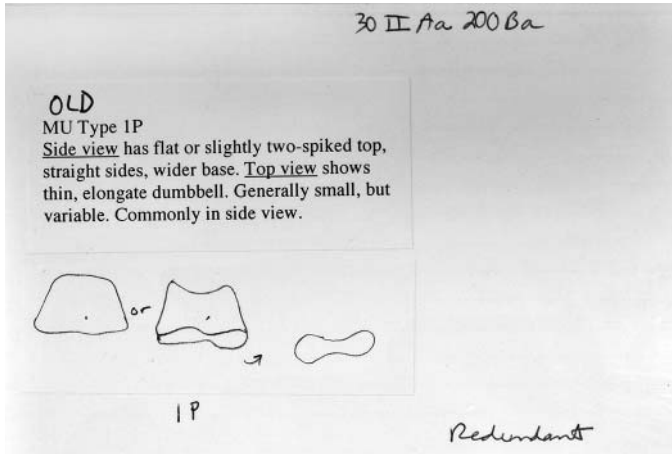 30 II Aa 200 Ba
OLD
MU Type 1P
Side view has flat or slightly two-spiked top,
straight sides, wider base. Top view shows
thin, elongate dumbbell. Generally small, but
variable. Commonly in side view.
or
1P
Redundant